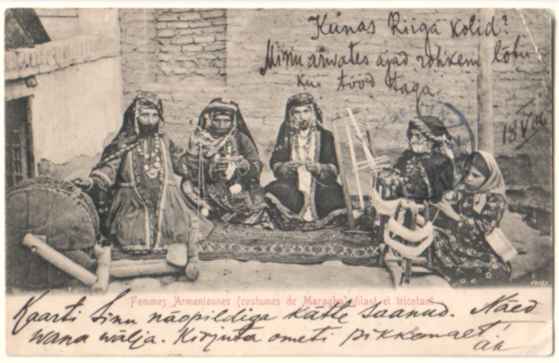 Kuunas Riiga kolid?
Minu arwates ajad rohkem lobu
kui tööd taga.
Femmes Arméniennes (costumes de Maragha) filant et tricotant
Kaarti Sinu näopildiga kätte saanud. Näed
wana wälja. Kirjuta ometi pikkemalt!